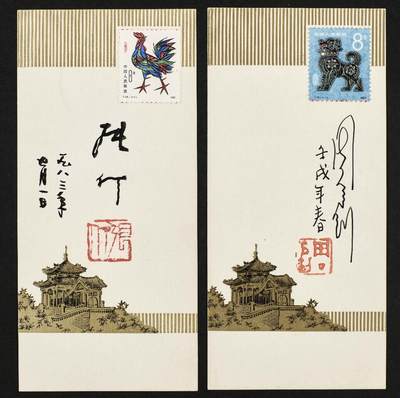 中国人民邮政
张仃
一九八三年
四月一日
中国人民邮政
8分
周令钊
壬戌年春